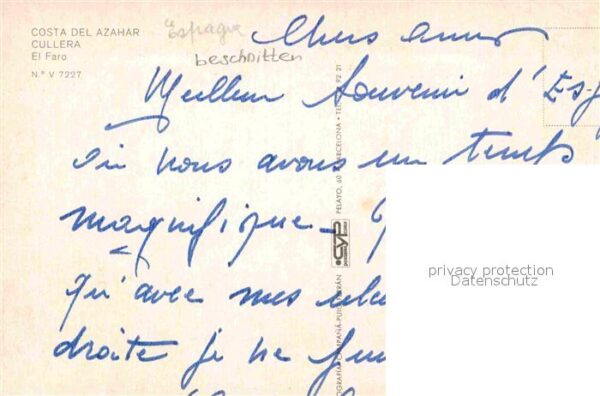 COSTA DEL AZAHAR
CULLERA
El Faro
N.º V 7227
Espagne
beschnitten
Chers amis
Meilleur Souvenir d'Esp
où nous avons un temps
magnifique
qu'avec mes
droite je ne
PELAYO, 60 BARCELONA
CYP
privacy protection
Datenschutz